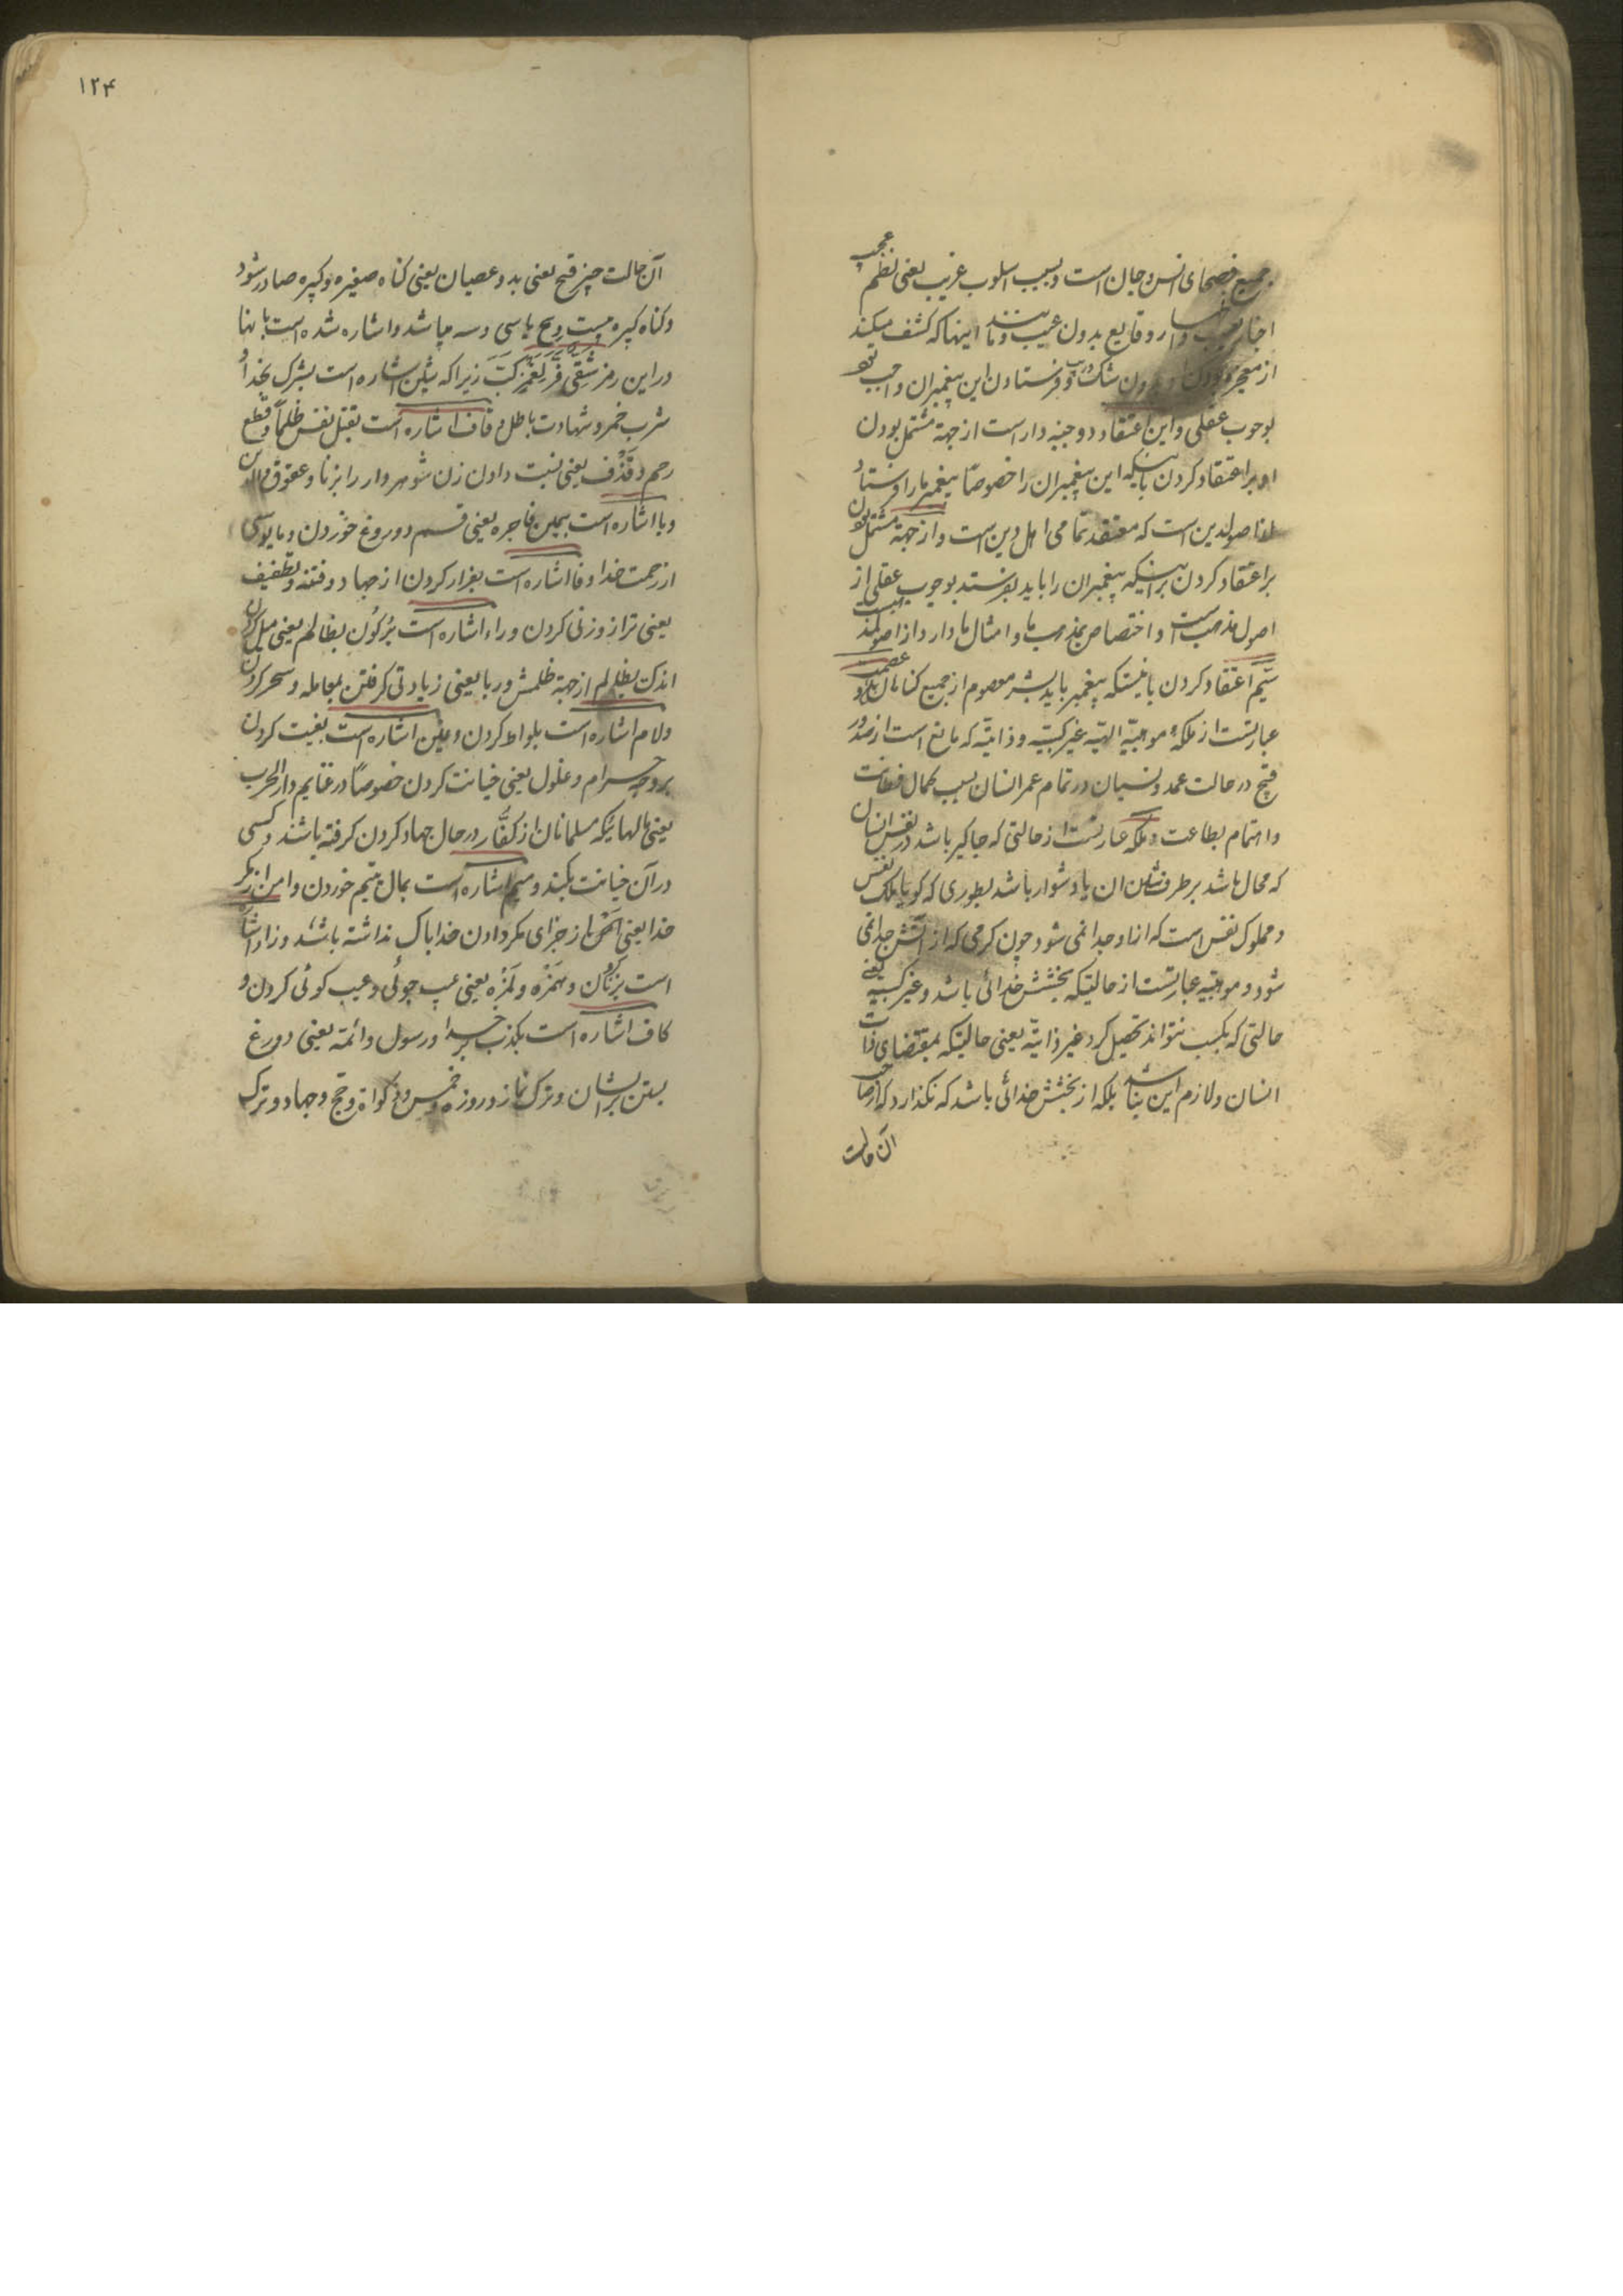 جمیع فصحای انس و جان است و بسبب اسلوب غریب یعنی نظم عجیب
اخبار و وقایع بدون عیب و مانند اینها که کشف میکند
از معجزه بودن و بدون شک و ریب و فرستادن این پیغمبران واجب بود
بوجوب عقلی و این اعتقاد دو جنبه دار است از جهة مشتمل بودن
او بر اعتقاد کردن باینکه این پیغمبران را خصوصاً پیغمبر ما را فرستاد
از اصولدین است که معتقد تمامی اهل دین است و از جهة مشتمل بودن
بر اعتقاد کردن براینکه پیغمبران را باید بفرستد بوجوب عقلی از
اصول مذهب است و اختصاص بمذهب ما و امثال ما دارد
سیّم اعتقاد کردن باینستکه پیغمبر باید بشر معصوم از جمیع گناهان عصمت
عبارتست از ملکهٔ موهبیّه الهیّه غیر کسبیّه و ذاتیّه که مانع است از صدور
قبیح در حالت عمد و نسیان در تمام عمر انسان بسبب کمال فطانت
و اهتمام بطاعت و ملکه عبارتست از حالتی که جاگیر باشد در نفس انسان
که محال باشد برطرف شدن ان یا دشوار باشد بطوری که گویا ملک نفس
و مملوک نفس است که از او جدا نمی شود چون گرمی که از آتش جدا نمی
شود و موهبیّه عبارتست از حالتیکه بخشش خدائی باشد و غیر کسبیّه یعنی
حالتی که بکسب نتواند تحصیل کرد غیر ذاتیّه یعنی حالتیکه بمقتضای ذات
انسان و لازم این نباشد بلکه از بخشش خدائی باشد که نگذارد که از صاحب
آن حالت
۱۲۴
آن حالت چیز قبیح یعنی بد و عصیان یعنی گناه صغیره و کبیره صادر شود
و گناه کبیره بیست و پنج یا سی و سه میباشد و اشاره شده است بانها
در این رمز شَقِیٌ فَرَّ لِغَمْزِکَ زیرا که بشین اشاره است بشرک بخدا و
شرب خمر و شهادت باطل و قاف اشاره است بقتل نفس ظلماً و قطع
رحم و قَذْف یعنی نسبت دادن زن شوهردار را بزنا و عقوق والدین
و یا اشاره است بیمین فاجره یعنی قسم دوروغ خوردن و مایوسی
از رحمت خدا و فا اشاره است بفرار کردن از جهاد و فتنه و تطفیف
یعنی ترازو زنی کردن و راء اشاره است برُکُون بظالم یعنی میل کردن
اندک بظالم از جهة ظلمش و ربا یعنی زیادتی گرفتن بمعامله و سحر کردن
و لام اشاره است بلواط کردن و غین اشاره است بغیبت کردن
بر وجه حرام و غلول یعنی خیانت کردن خصوصاً در غنایم دار الحرب
یعنی مالهائیکه مسلمانان از کفّار در حال جهاد کردن گرفته باشند و کسی
در آن خیانت بکند و میم اشاره است بمال یتیم خوردن و امن از مکر
خدا یعنی از جزای مکر دادن خدا باک نداشته باشد و زاء اشاره
است بزنا کردن و هُمَزَه و لُمَزه یعنی عیب جوئی و عیب گوئی کردن و
کاف اشاره است بکذب بر خدا و رسول و ائمّه یعنی دورغ
بستن بر ایشان و ترک نماز و روزه و خمس و زکواة و حج و جهاد و ترک